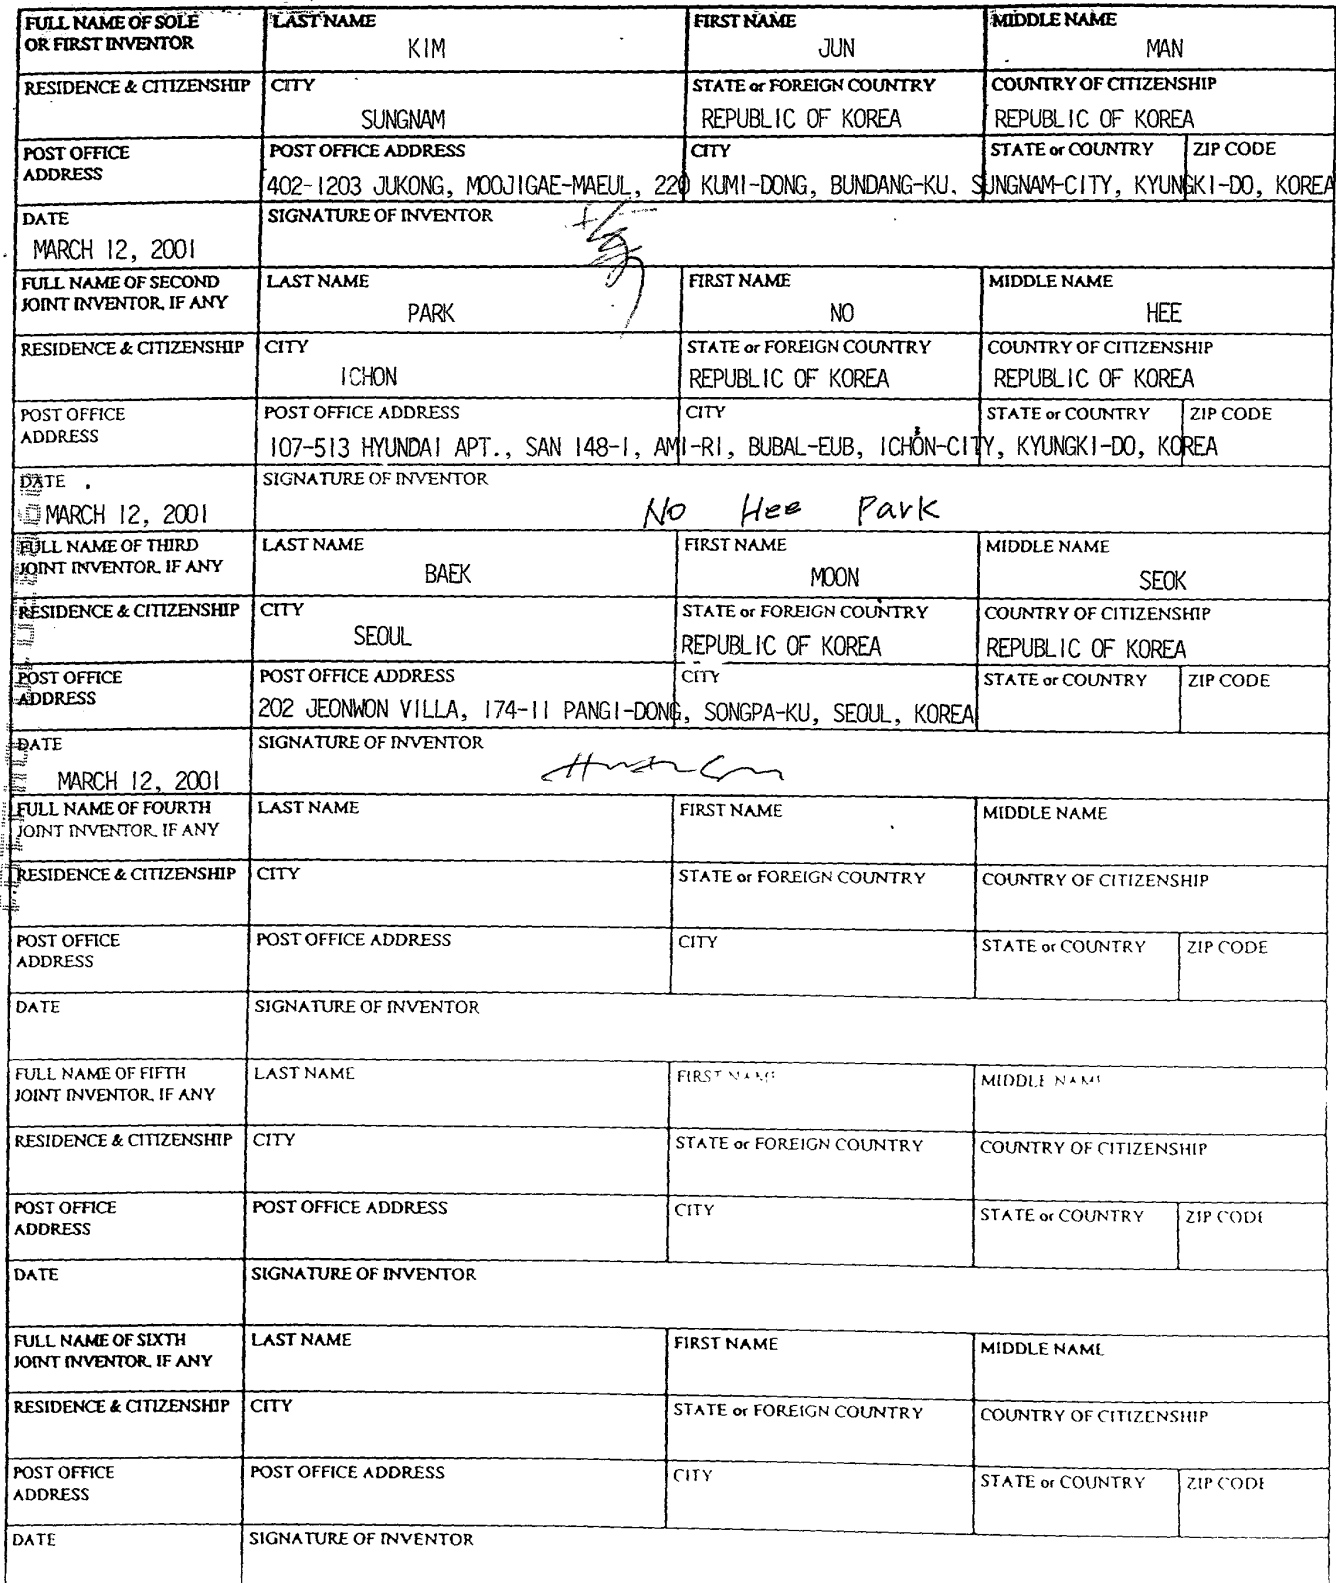 FULL NAME OF SOLE OR FIRST INVENTOR LAST NAME KIM FIRST NAME JUN MIDDLE NAME MAN
RESIDENCE & CITIZENSHIP CITY SUNGNAM STATE or FOREIGN COUNTRY REPUBLIC OF KOREA COUNTRY OF CITIZENSHIP REPUBLIC OF KOREA
POST OFFICE ADDRESS POST OFFICE ADDRESS CITY STATE or COUNTRY ZIP CODE
402-1203 JUKONG, MOOJIGAE-MAEUL, 220 KUMI-DONG, BUNDANG-KU. SUNGNAM-CITY, KYUNGKI-DO, KOREA
DATE MARCH 12, 2001 SIGNATURE OF INVENTOR
FULL NAME OF SECOND JOINT INVENTOR, IF ANY LAST NAME PARK FIRST NAME NO MIDDLE NAME HEE
RESIDENCE & CITIZENSHIP CITY ICHON STATE or FOREIGN COUNTRY REPUBLIC OF KOREA COUNTRY OF CITIZENSHIP REPUBLIC OF KOREA
POST OFFICE ADDRESS POST OFFICE ADDRESS CITY STATE or COUNTRY ZIP CODE
107-513 HYUNDAI APT., SAN 148-1, AMI-RI, BUBAL-EUB, ICHON-CITY, KYUNGKI-DO, KOREA
DATE MARCH 12, 2001 SIGNATURE OF INVENTOR No Hee Park
FULL NAME OF THIRD JOINT INVENTOR, IF ANY LAST NAME BAEK FIRST NAME MOON MIDDLE NAME SEOK
RESIDENCE & CITIZENSHIP CITY SEOUL STATE or FOREIGN COUNTRY REPUBLIC OF KOREA COUNTRY OF CITIZENSHIP REPUBLIC OF KOREA
POST OFFICE ADDRESS POST OFFICE ADDRESS CITY STATE or COUNTRY ZIP CODE
202 JEONWON VILLA, 174-11 PANGI-DONG, SONGPA-KU, SEOUL, KOREA
DATE MARCH 12, 2001 SIGNATURE OF INVENTOR
FULL NAME OF FOURTH JOINT INVENTOR, IF ANY LAST NAME FIRST NAME MIDDLE NAME
RESIDENCE & CITIZENSHIP CITY STATE or FOREIGN COUNTRY COUNTRY OF CITIZENSHIP
POST OFFICE ADDRESS POST OFFICE ADDRESS CITY STATE or COUNTRY ZIP CODE
DATE SIGNATURE OF INVENTOR
FULL NAME OF FIFTH JOINT INVENTOR, IF ANY LAST NAME FIRST NAME MIDDLE NAME
RESIDENCE & CITIZENSHIP CITY STATE or FOREIGN COUNTRY COUNTRY OF CITIZENSHIP
POST OFFICE ADDRESS POST OFFICE ADDRESS CITY STATE or COUNTRY ZIP CODE
DATE SIGNATURE OF INVENTOR
FULL NAME OF SIXTH JOINT INVENTOR, IF ANY LAST NAME FIRST NAME MIDDLE NAME
RESIDENCE & CITIZENSHIP CITY STATE or FOREIGN COUNTRY COUNTRY OF CITIZENSHIP
POST OFFICE ADDRESS POST OFFICE ADDRESS CITY STATE or COUNTRY ZIP CODE
DATE SIGNATURE OF INVENTOR